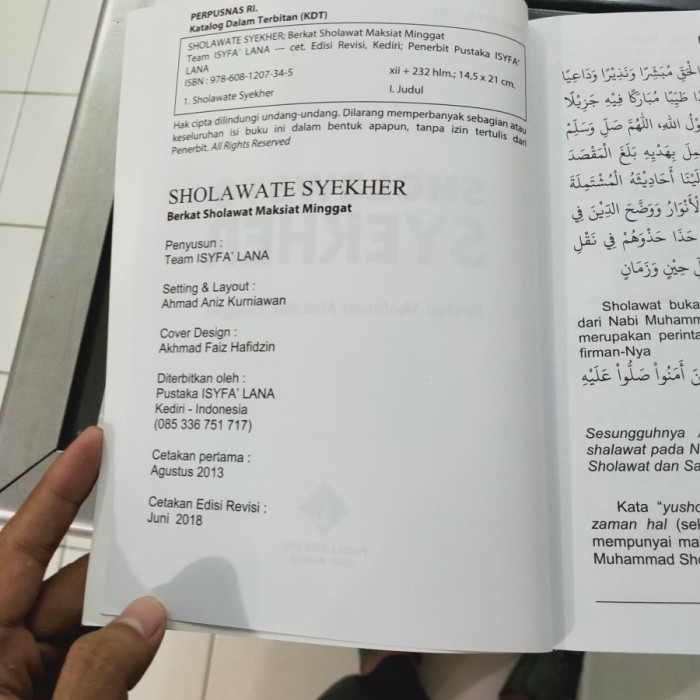 PERPUSNAS RI.
Katalog Dalam Terbitan (KDT)
SHOLAWATE SYEKHER; Berkat Sholawat Maksiat Minggat
Team ISYFA' LANA — cet. Edisi Revisi, Kediri; Penerbit Pustaka ISYFA'
LANA
xii + 232 hlm.; 14,5 x 21 cm.
ISBN : 978-608-1207-34-5
1. Sholawate Syekher
I. Judul
Hak cipta dilindungi undang-undang. Dilarang memperbanyak sebagian atau
keseluruhan isi buku ini dalam bentuk apapun, tanpa izin tertulis dari
Penerbit. All Rights Reserved
SHOLAWATE SYEKHER
Berkat Sholawat Maksiat Minggat
Penyusun :
Team ISYFA' LANA
Setting & Layout :
Ahmad Aniz Kurniawan
Cover Design :
Akhmad Faiz Hafidzin
Diterbitkan oleh :
Pustaka ISYFA' LANA
Kediri - Indonesia
(085 336 751 717)
Cetakan pertama :
Agustus 2013
Cetakan Edisi Revisi :
Juni 2018
الْحَقِّ مُبَشِّرًا وَنَذِيْرًا وَدَاعِيًا
طَيِّبًا مُبَارَكًا فِيْهِ جَزِيْلًا
اللهِ، اَللّٰهُمَّ صَلِّ وَسَلِّمْ
بِهَدْيِهِ بَلَغَ الْمَقْصَدَ
أَحَادِيْثَهُ الْمُشْتَمِلَةَ
الْأَنْوَارُ وَوَضَّحَ الدِّيْنَ فِي
حَذَا حَذْوَهُمْ فِي نَقْلِ
حِيْنٍ وَزَمَانٍ
Sholawat buka
dari Nabi Muhamm
merupakan perinta
firman-Nya
أَمَنُواْ صَلُّواْ عَلَيْهِ
Sesungguhnya
shalawat pada N
Sholawat dan Sa
Kata "yusho
zaman hal (sek
mempunyai ma
Muhammad Sho